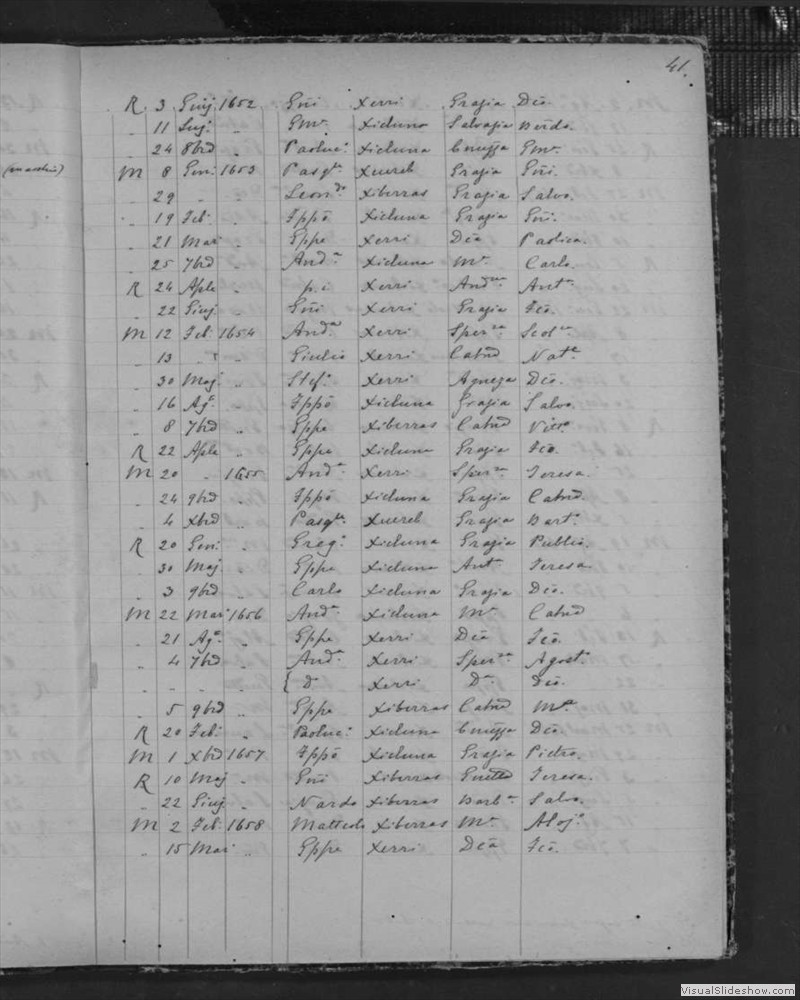 41.
R 3 Giuj. 1652 Gñi Xerri Grazia Dca.
" 11 Lug. " Gmr. Xicluna Salvazia
" 24 8bre " Paoluc. Xicluna Gmr.
M 8 Gen. 1653 Pasqle. Xuereb Grazia Gñi.
" 29 " " Leondo. Xiberras Grazia Salvo.
" 19 Feb. " Ippõ Xicluna Grazia Gñi.
" 21 Mar. " Gppe Xerri Dca Paolica.
" 25 7bre " Anda. Xicluna Mra. Carlo.
R 24 Aple " p.i Xerri Andna Anta.
" 22 Giuj " Gñi Xerri Grazia Fco.
M 12 Feb. 1654 Anda. Xerri Sperza
" 13 " " Giulio Xerri Catna Nate.
" 30 Maj. " Stefo. Xerri Agneza Dca.
" 16 Ago. " Ippõ Xicluna Grazia Salvo.
" 8 7bre " Gppe Xiberras Catna Vitra.
R 22 Aple " Gppe Xicluna Grazia Fco.
M 20 " 1655 Anda. Xerri Sperza Teresa.
" 24 9bre " Ippõ Xicluna Grazia Catna.
" 4 Xbre " Pasqle. Xuereb Grazia Barto.
R 20 Gen. " Grego. Xicluna Grazia Publio.
" 30 Maj " Gppe Xicluna Anta Teresa.
" 3 9bre " Carlo Xicluna Grazia Dca.
M 22 Mar. 1656 Anda. Xicluna Mra. Catna
" 21 Ago. " Gppe Xerri Dca Fco.
" 4 7bre " Anda. Xerri Sperza Agosto.
" " " " { Do Xerri Da. Dca.
" 5 9bre " Gppe Xiberras Catna Mra
R 20 Feb. " Paoluc. Xicluna Dca.
M 1 Xbre 1657 Ippõ Xicluna Grazia Pietro.
R 10 Maj " Gñi Xiberras Teresa.
" 22 Giuj " Nardo Xiberras Barba. Salvo.
M 2 Feb. 1658 Matteolo Xiberras Mra. Alojo.
" 15 Mar. " Gppe Xerri Dca Fco.
VisualSlideshow.com